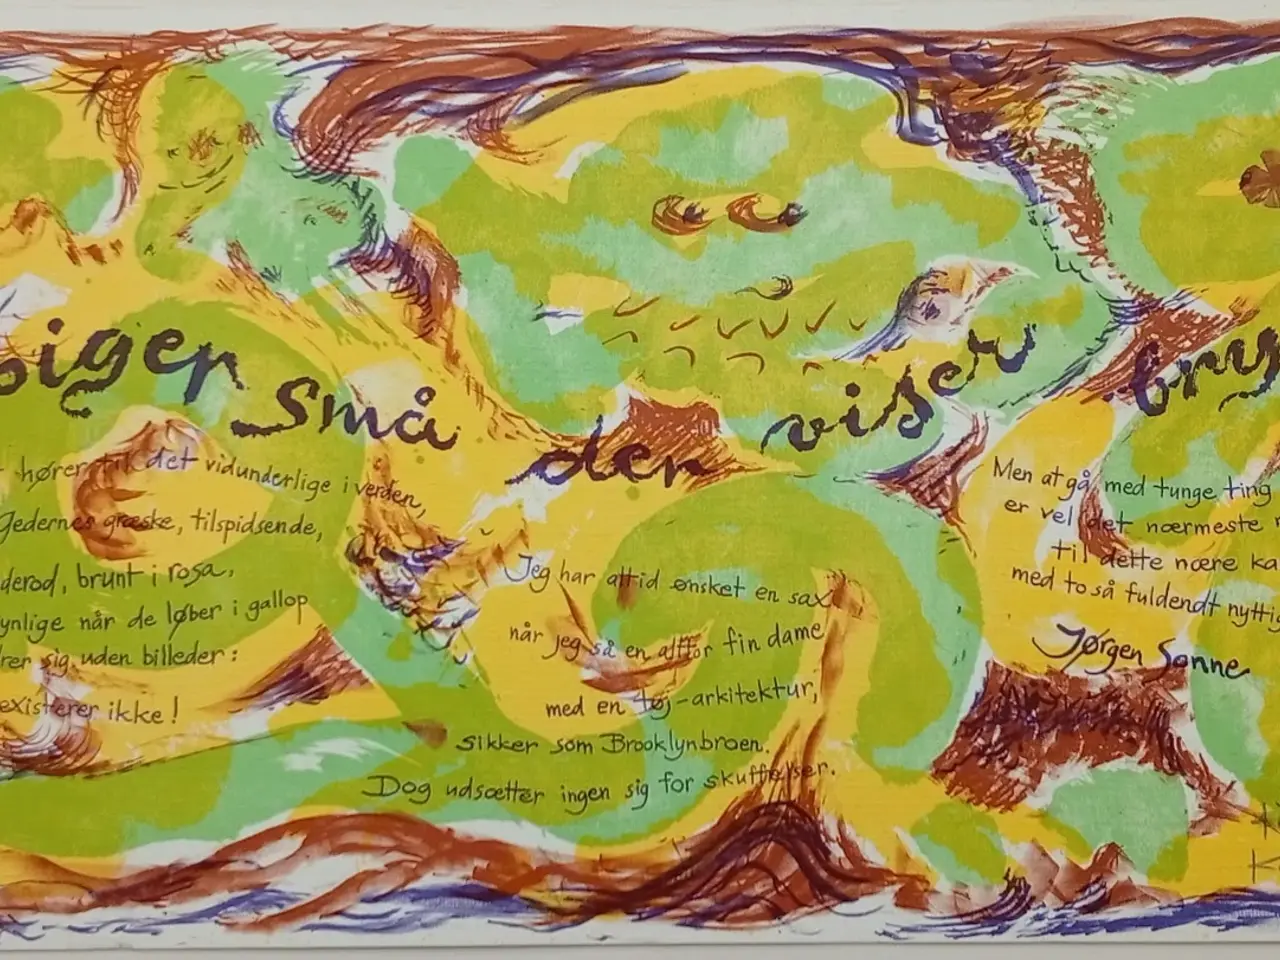 piger små der viser bry
hører til det vidunderlige i verden,
Gedernes græske, tilspidsende,
derød, brunt i rosa,
ynlige når de løber i gallop
rer sig uden billeder:
existerer ikke!
Jeg har altid ønsket en sax
når jeg så en altfor fin dame
med en tøj-arkitektur,
sikker som Brooklynbroen.
Dog udsætter ingen sig for skuffelser.
Men at gå med tunge ting
er vel det nærmeste
til dette nære ka
med to så fuldendt nyttig
Jørgen Sonne